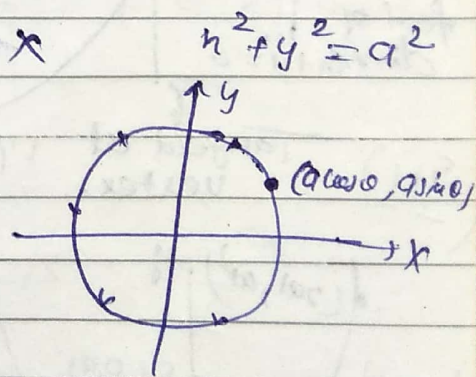 x x² + y² = a²
y
(acosθ, asinθ)
X